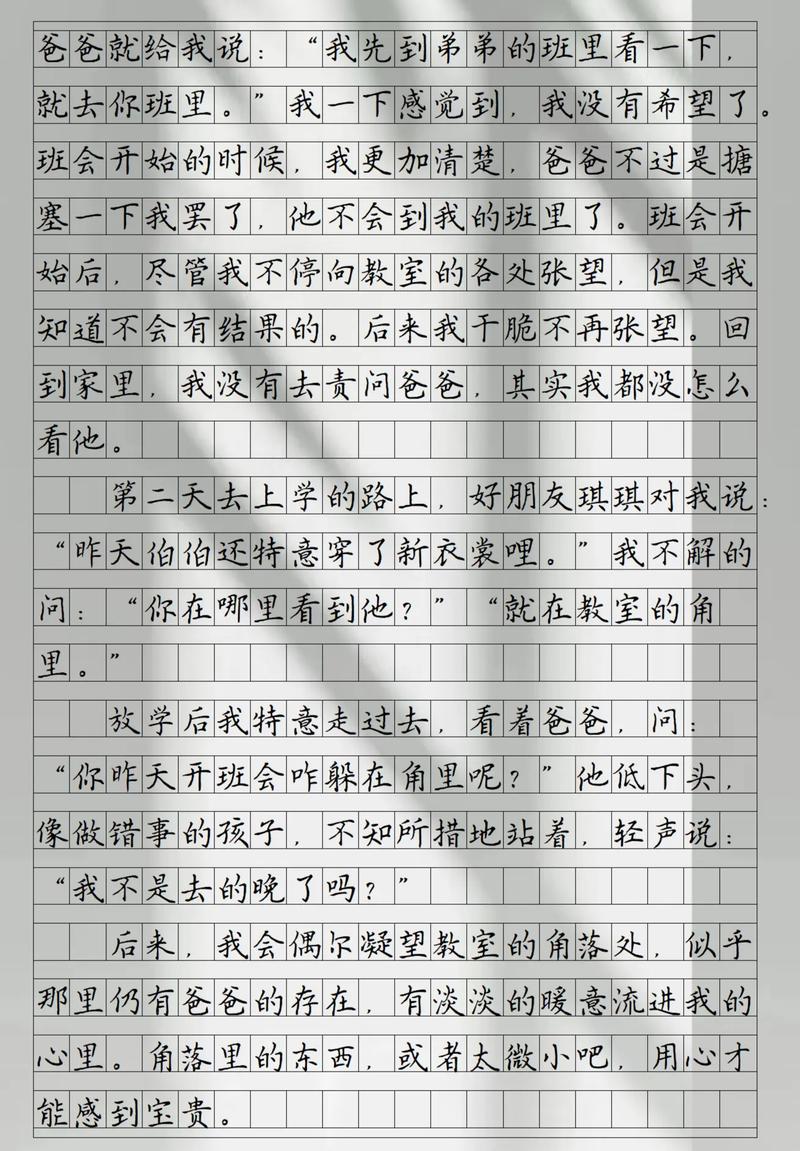 爸爸就给我说：“我先到弟弟的班里看一下，
就去你班里。”我一下感觉到，我没有希望了。
班会开始的时候，我更加清楚，爸爸不过是搪
塞一下我罢了，他不会到我的班里了。班会开
始后，尽管我不停向教室的各处张望，但是我
知道不会有结果的。后来我干脆不再张望。回
到家里，我没有去责问爸爸，其实我都没怎么
看他。
第二天去上学的路上，好朋友琪琪对我说：
“昨天伯伯还特意穿了新衣裳哩。”我不解的
问：“你在哪里看到他？”“就在教室的角
里。”
放学后我特意走过去，看着爸爸，问：
“你昨天开班会咋躲在角里呢？”他低下头，
像做错事的孩子，不知所措地站着，轻声说：
“我不是去的晚了吗？”
后来，我会偶尔凝望教室的角落处，似乎
那里仍有爸爸的存在，有淡淡的暖意流进我的
心里。角落里的东西，或者太微小吧，用心才
能感到宝贵。